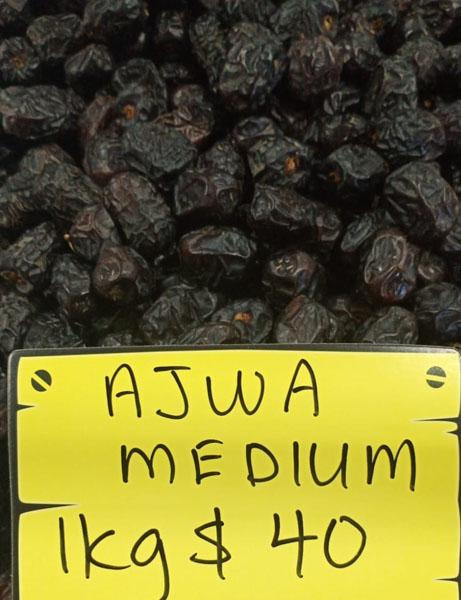 AJWA
MEDIUM
1kg $ 40